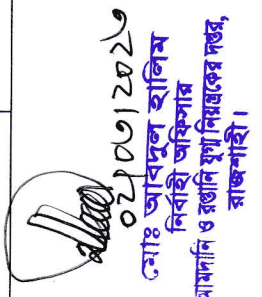 মোঃ আবদুল হালিম
নির্বাহী অফিসার
আমদানি ও রপ্তানি যুগ্ম নিয়ন্ত্রকের দপ্তর,
রাজশাহী।